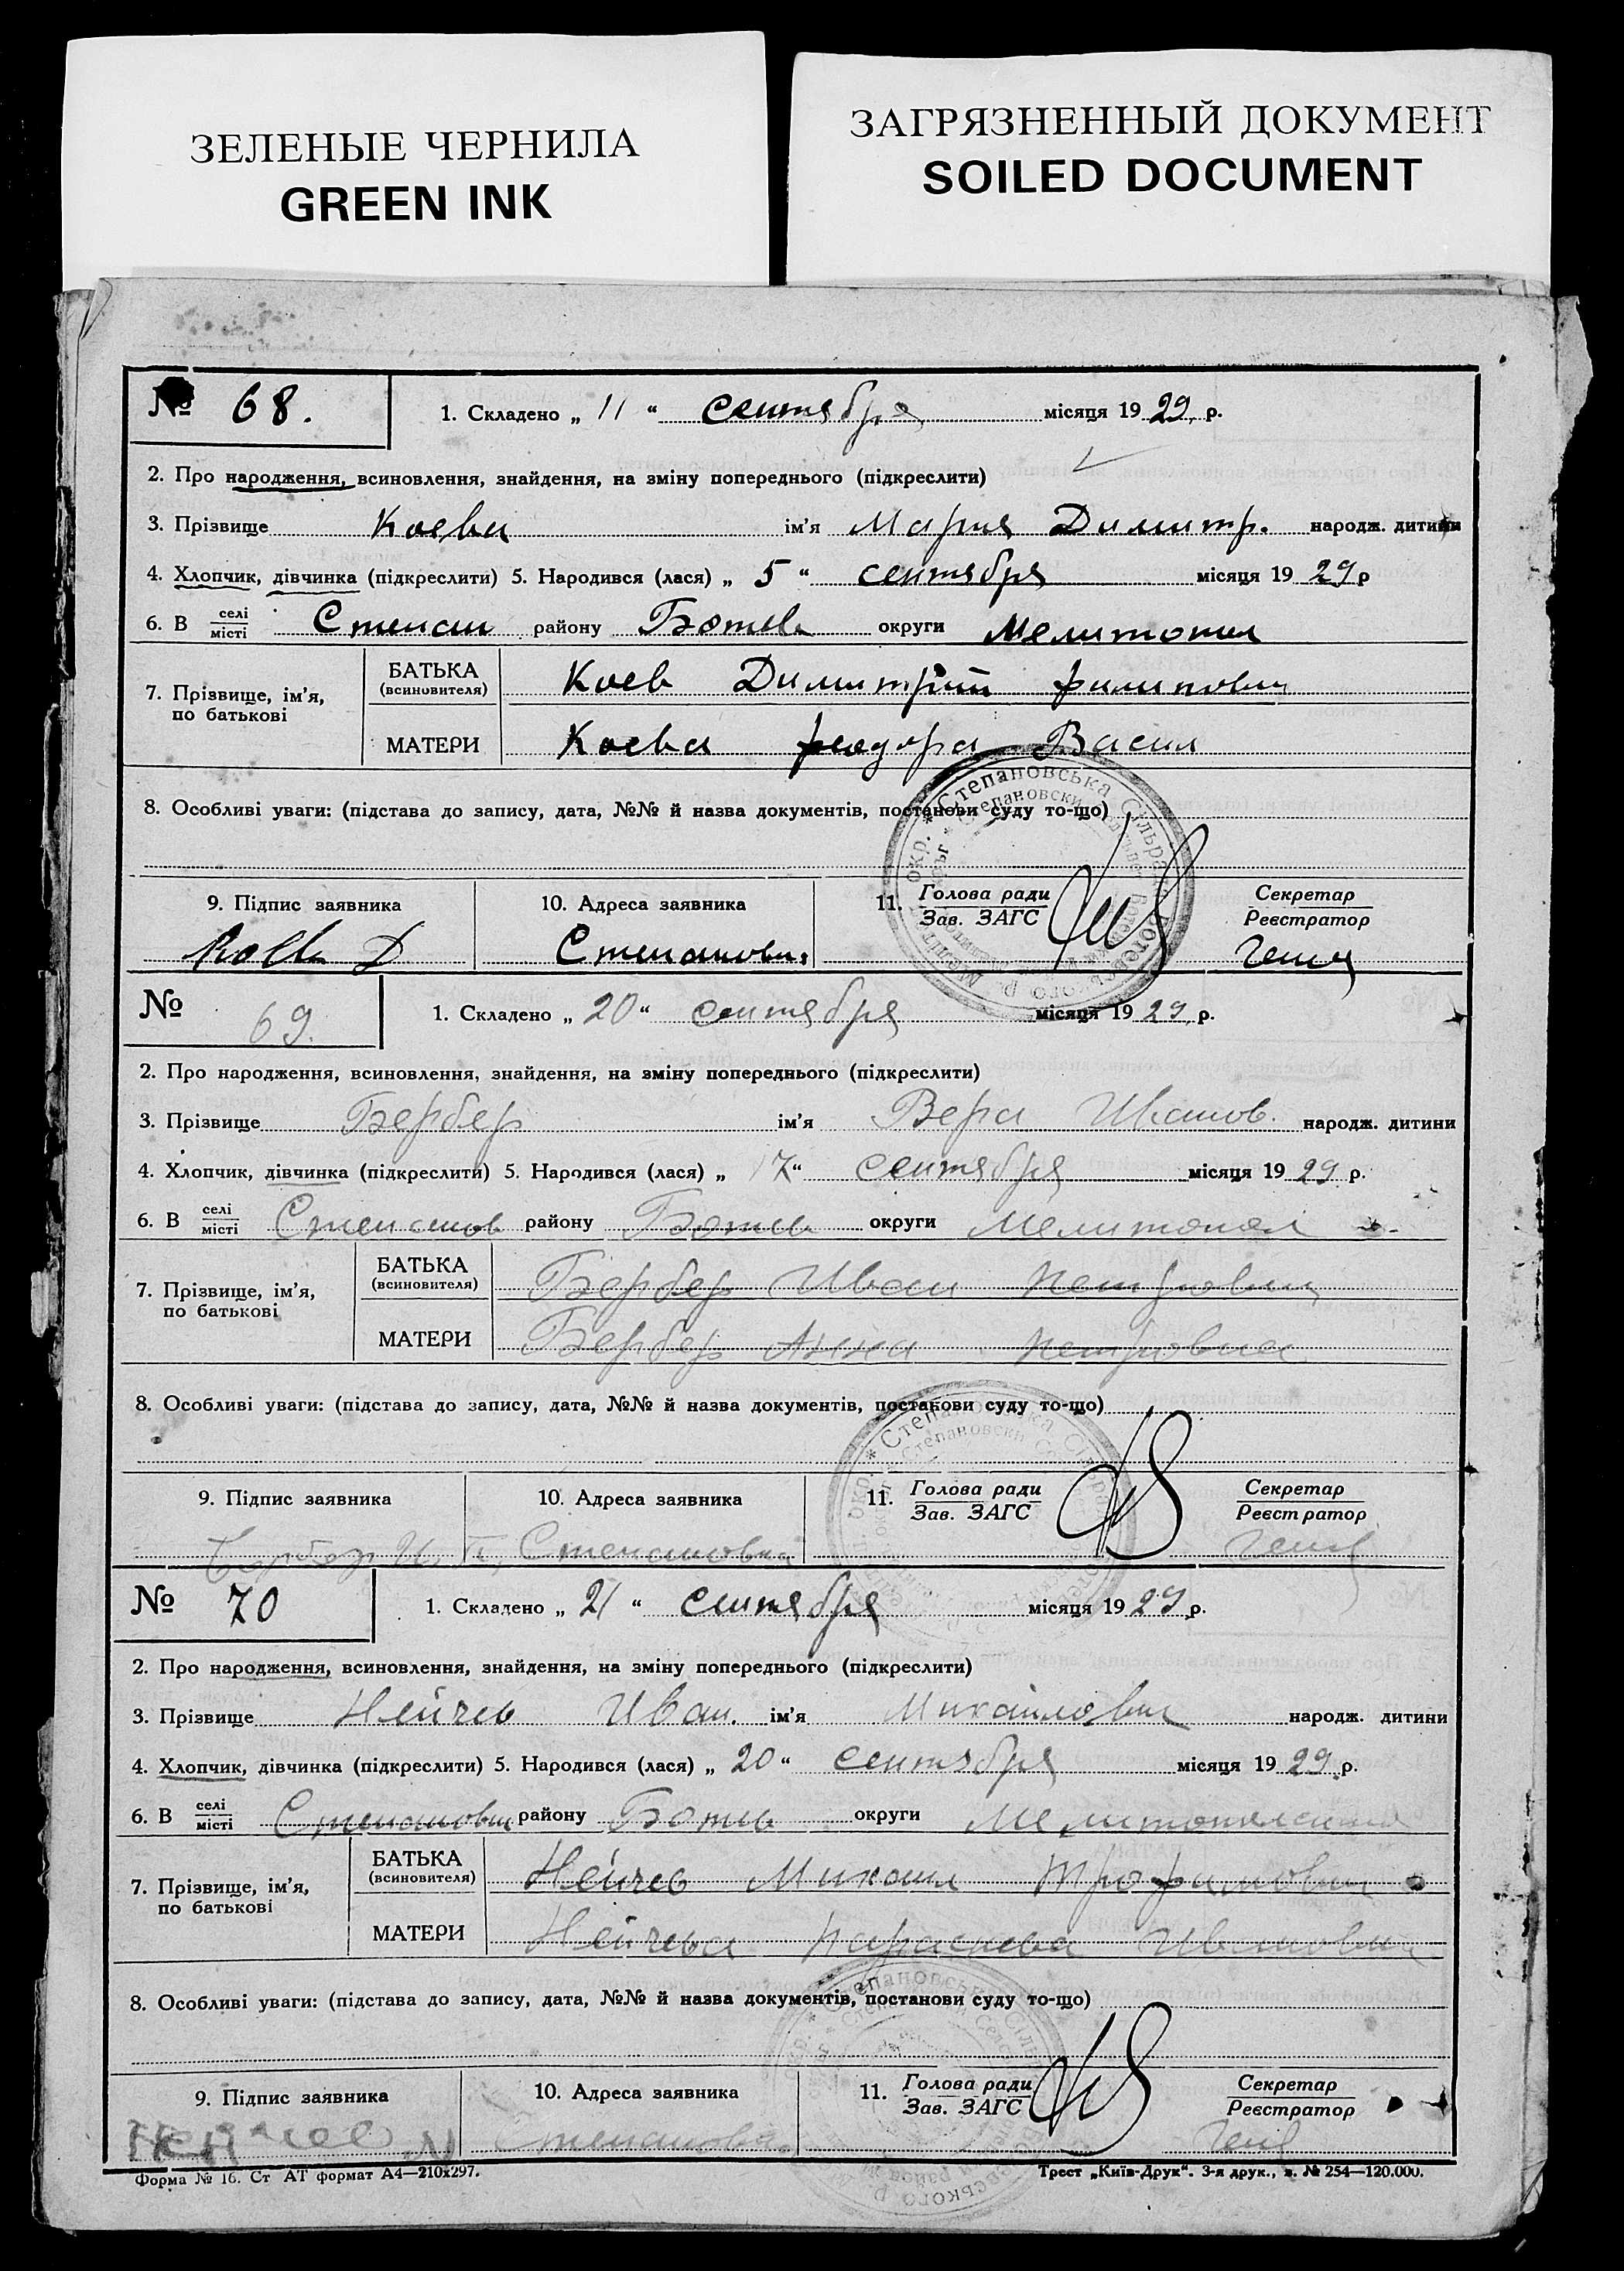 ЗЕЛЕНЫЕ ЧЕРНИЛА
GREEN INK
ЗАГРЯЗНЕННЫЙ ДОКУМЕНТ
SOILED DOCUMENT
№ 68. 1. Складено „ 11 “ сентября місяця 1929 р.
2. Про народження, всиновлення, знайдення, на зміну попереднього (підкреслити)
3. Прізвище Коева ім'я Мария Димитр. народж. дитини
4. Хлопчик, дівчинка (підкреслити) 5. Народився (лася) „ 5 “ сентября місяця 19 29 р
6. В селі місті Степан району Ботев округи Мелитопол
7. Прізвище, ім'я, по батькові БАТЬКА (всиновителя) Коев Димитрий Филипович
МАТЕРИ Коева Феодора Васил
8. Особливі уваги: (підстава до запису, дата, №№ й назва документів, постанови суду то-що)
Степановська Сільрада Ботевського р. Меліт. окр.
9. Підпис заявника 10. Адреса заявника 11. Голова ради Зав. ЗАГС Секретар Реєстратор
Коев Д Степановк.
№ 69. 1. Складено „ 20 “ сентября місяця 19 29 р.
2. Про народження, всиновлення, знайдення, на зміну попереднього (підкреслити)
3. Прізвище Бербер ім'я Вера Иванов. народж. дитини
4. Хлопчик, дівчинка (підкреслити) 5. Народився (лася) „ 17 “ сентября місяця 19 29 р.
6. В селі місті Степанов району Ботев округи Мелитопол
7. Прізвище, ім'я, по батькові БАТЬКА (всиновителя) Бербер Иван Петрович
МАТЕРИ Бербер Анна Петровна
8. Особливі уваги: (підстава до запису, дата, №№ й назва документів, постанови суду то-що)
9. Підпис заявника 10. Адреса заявника 11. Голова ради Зав. ЗАГС Секретар Реєстратор
Бербер И. П. Степановка
№ 70 1. Складено „ 21 “ сентября місяця 19 29 р.
2. Про народження, всиновлення, знайдення, на зміну попереднього (підкреслити)
3. Прізвище Нейчев Иван. ім'я Михайлович народж. дитини
4. Хлопчик, дівчинка (підкреслити) 5. Народився (лася) „ 20 “ сентября місяця 19 29 р.
6. В селі місті Степановки району Ботев округи Мелитопольский
7. Прізвище, ім'я, по батькові БАТЬКА (всиновителя) Нейчев Михаил Трофимович
МАТЕРИ Нейчева Параскева Ивановна
8. Особливі уваги: (підстава до запису, дата, №№ й назва документів, постанови суду то-що)
9. Підпис заявника 10. Адреса заявника 11. Голова ради Зав. ЗАГС Секретар Реєстратор
Нейчев М Степановка
Форма № 16. Ст АТ формат А4—210х297. Трест „Київ-Друк“. 3-я друк., з. № 254—120.000.